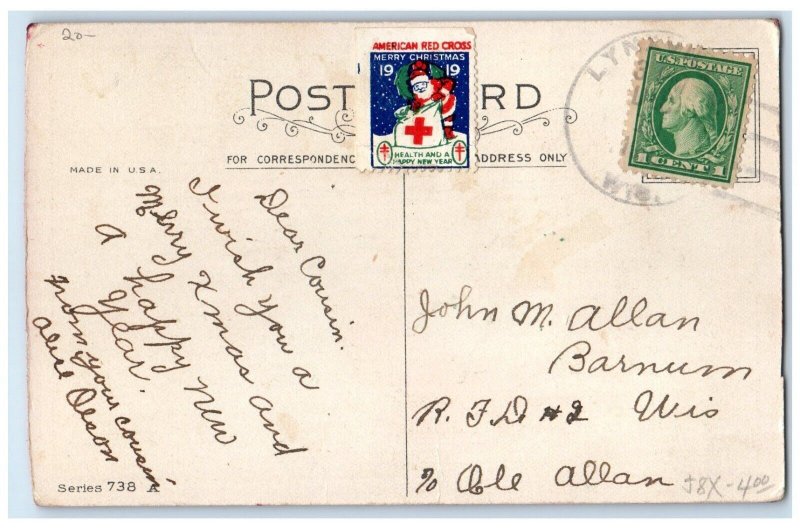 20-
AMERICAN RED CROSS
MERRY CHRISTMAS
19 19
HEALTH AND A
HAPPY NEW YEAR
POST RD
FOR CORRESPONDENC ADDRESS ONLY
MADE IN U.S.A.
LYN
WIS.
U.S. POSTAGE
1 CENT 1
Dear Cousin.
I wish you a
Merry Xmas and
a happy new
year.
from your cousin
Alice Olson
Series 738 A
John M. Allan
Barnum
R. F. D #2 Wis
% Ole Allan
58X-4.00